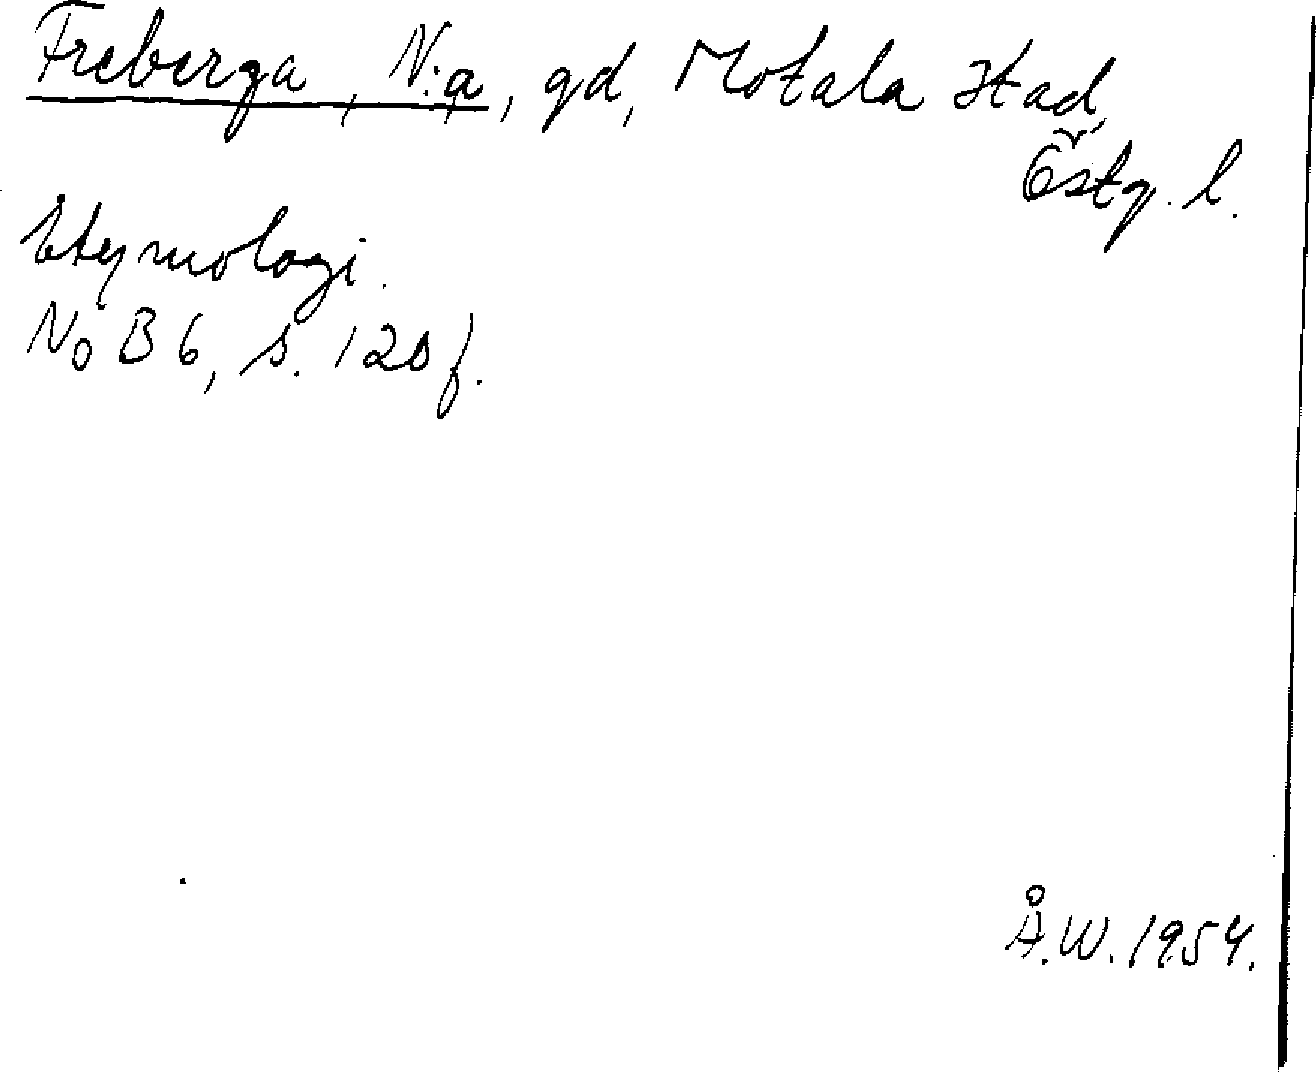 Freberga, N:a, gd, Motala stad,
Östg. l.
Etymologi.
NoB 6, s. 120 f.
Å.W. 1954.